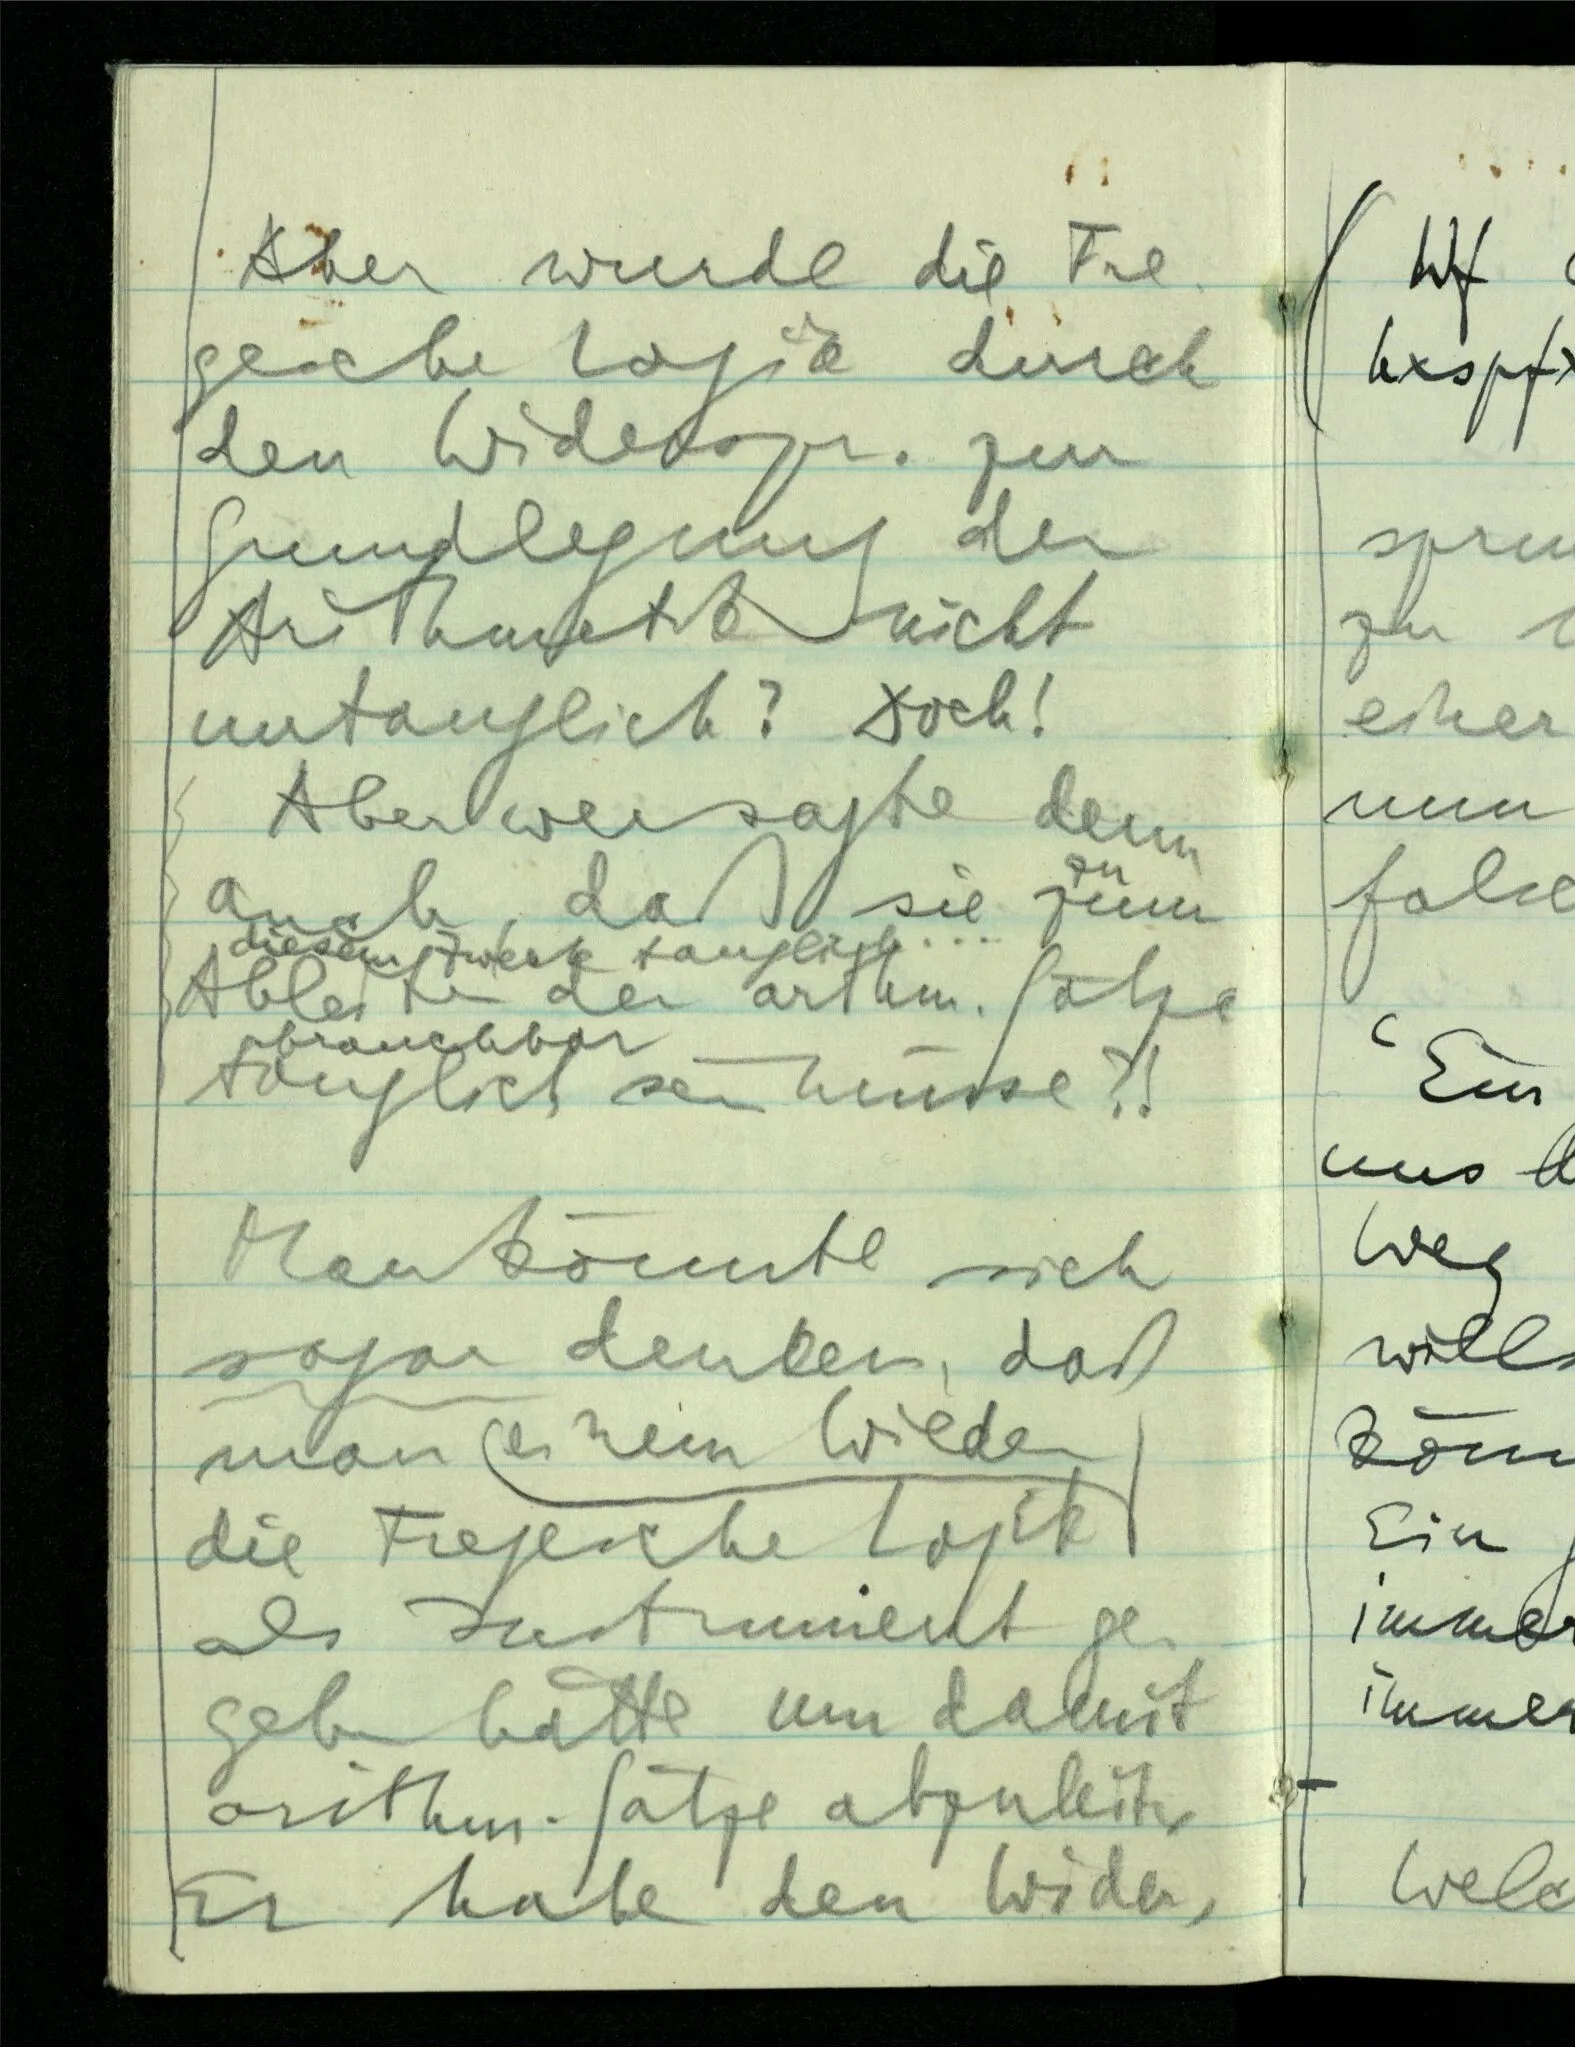 Aber wurde die Fre
gesche Logik durch
den Widerspr. zur
Grundlegung der
Arithmetik nicht
untauglich? Doch!
Aber wer sagte denn
auch, daß sie zum
zu
diesem Zweck tauglich...
Ableiten der arithm. Sätze
brauchbar
tauglich sein müsse?!
Man könnte sich
sogar denken, daß
man einem Wilden
die Fregesche Logik
als Instrument ge-
geben hätte um damit
arithm. Sätze abzuleiten
Er habe den Wider-
spru
zu
einer
nun
falle
"Ein
uns d
Weg
will
könn
Ein
immer
immer
Welc